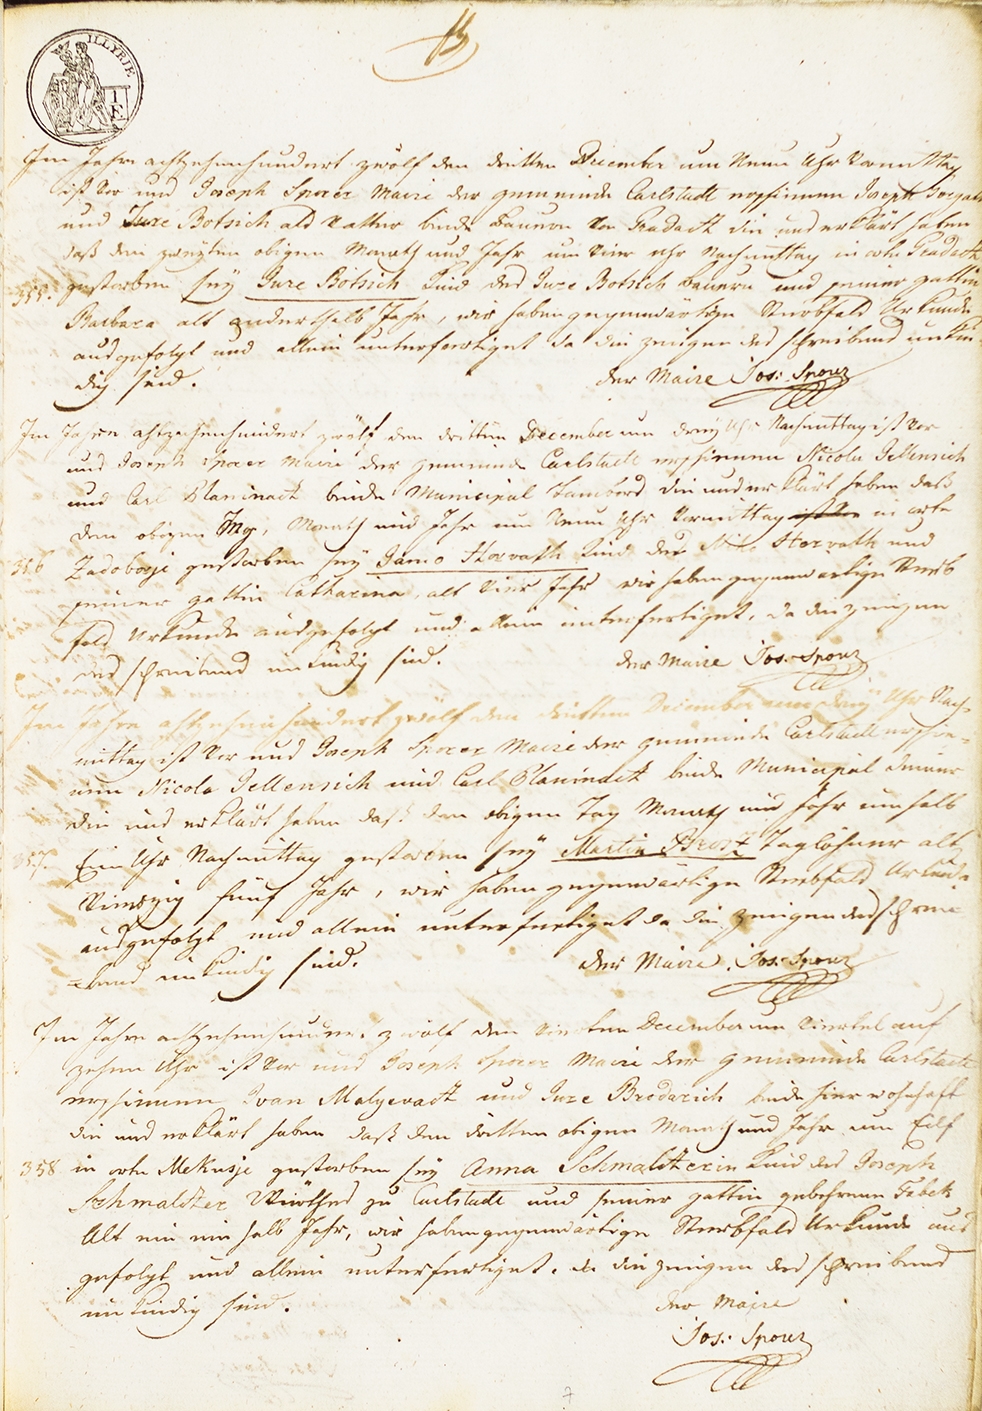 ILLYRIE
Im Jahre achtzehenhundert zwölf den dritten December um Neun Uhr Vormittag
ist vor uns Joseph Sporer Maire der gemeinde Carlstadt erschinnen Joseph
und Jure Botsich als Vatter beide Bauern von Gradatz die uns erklärt haben
daß den zweyten obigen Monath und Jahr um Vier Uhr Nachmittag in orte Gradatz
355. gestorben sey Jure Botsich Kind des Jure Botsich Bauern und seiner gattin
Barbara alt anderthalb Jahr, wir haben gegenwärtige Sterbfals Urkunde
ausgefolgt und allein unterfertiget da die zeugen des schreibens unkün-
dig sind. der Maire Jos: Sporer
Im Jahre achtzehenhundert zwölf den dritten December um drey Uhr Nachmittag ist vor
uns Joseph Sporer Maire der gemeinde Carlstadt erschinnen Nicola Jellensich
und Carl Planinack beide Municipal die uns erklärt haben daß
den obigen Tag, Monath und Jahr um Neun Uhr Vormittag ist vor in orte
356 Zadoborje gestorben sey Jano Horvath Kind des Horvath und
seiner gattin Catharina, alt Vier Jahr wir haben gegenwärtige Sterb
fals Urkunde ausgefolgt und allein unterfertiget, da die zeugen
des schreibens unkündig sind. der Maire Jos: Sporer
Im Jahre achtzehenhundert zwölf den dritten December um drey Uhr Nach-
mittag ist vor uns Joseph Sporer Maire der gemeinde Carlstadt erschin-
nen Nicola Jellensich und Carl Planinack beide Municipal diener
die uns erklärt haben daß den obigen Tag Monath und Jahr um halb
357. Ein Uhr Nachmittag gestorben sey Martin Taglöhner alt
Vierzig fünf Jahr, wir haben gegenwärtige Sterbfals Urkunde
ausgefolgt und allein unterfertiget da die zeugen des schrei-
bens unkündig sind. der Maire Jos: Sporer
Im Jahre achtzehenhundert zwölf den vierten December um Viertel auf
zehen Uhr ist vor uns Joseph Sporer Maire der gemeinde Carlstadt
erschinnen Ivan Malyevatz und Jure Brodarich beide hier wohnhaft
die uns erklärt haben daß den dritten obigen Monath und Jahr um Eilf
358 in orte Mekusje gestorben sey Anna Schmaltzerin Kind des Joseph
Schmaltzer Würthes zu Carlstadt und seiner gattin gebohrene
Alt ein ein halb Jahr, wir haben gegenwärtige Sterbfals Urkunde aus
gefolgt und allein unterfertiget, da die zeugen des schreibens
unkündig sind. der Maire
Jos: Sporer
7